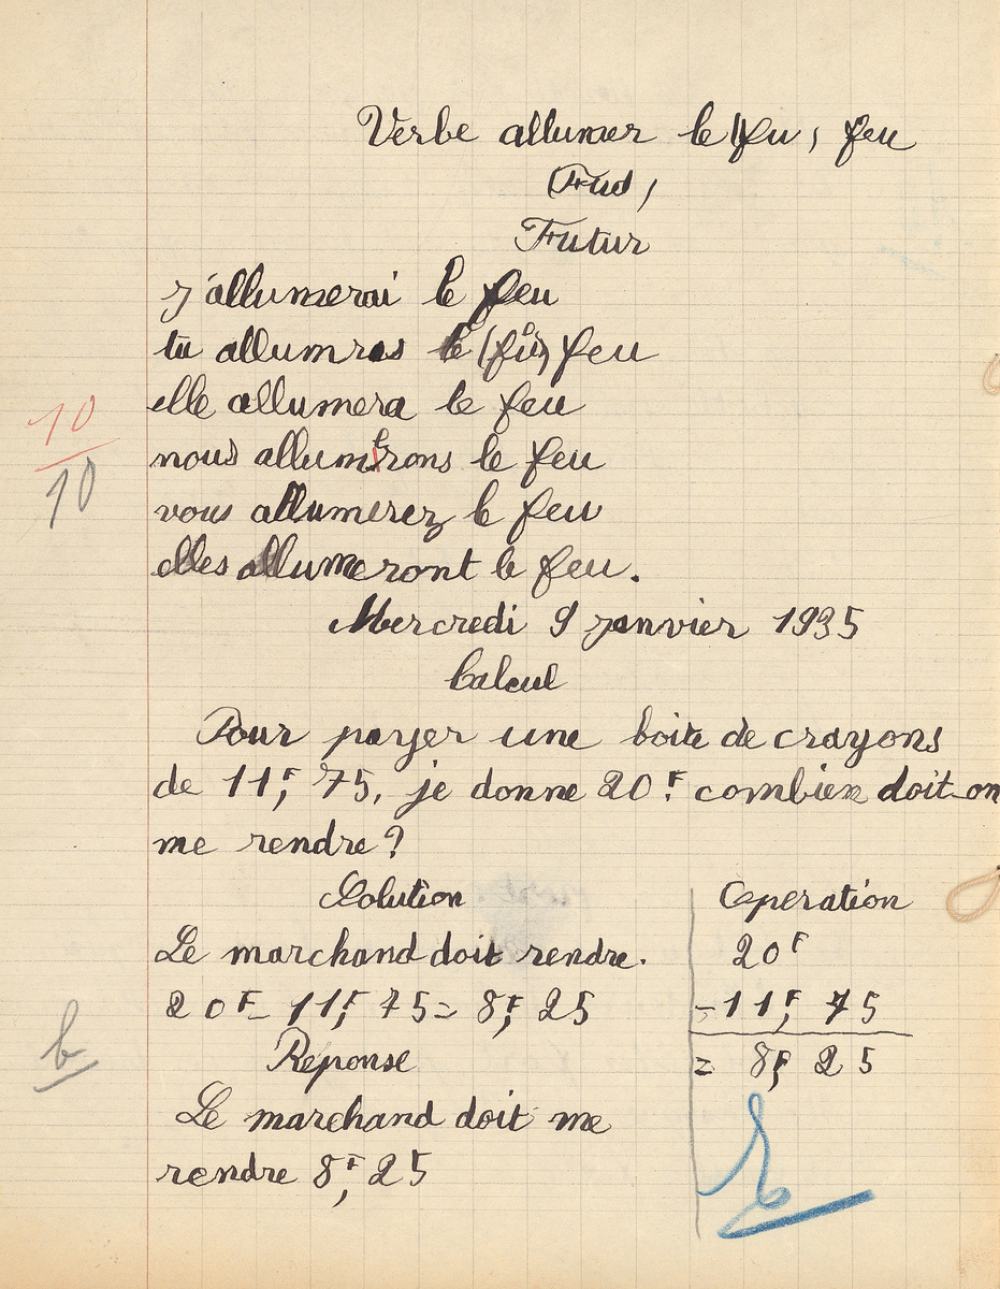 Verbe allumer le (fu) feu
(Fud)
Futur
j'allumerai le feu
tu allumras le (fu) feu
elle allumera le feu
10
nous allumerons le feu
10
vous allumerez le feu
elles allumeront le feu.
Mercredi 9 janvier 1935
Calcul
Pour payer une boite de crayons
de 11F,75, je donne 20F. combien doit-on
me rendre?
Solution
Opération
Le marchand doit rendre.
20F
20F - 11F,75 = 8F,25
- 11F,75
Réponse
= 8F,25
b
Le marchand doit me
rendre 8F,25